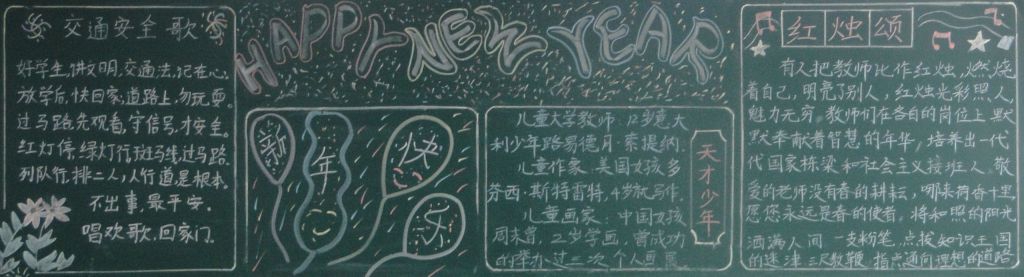 交通安全歌
好学生,讲文明,交通法,记在心。
放学后,快回家,道路上,勿玩耍。
过马路,先观看,守信号,才安全。
红灯停,绿灯行,斑马线,过马路。
列队行,排二人,人行道,是根本。
不出事,最平安。
唱欢歌,回家门。
HAPPY NEW YEAR
新
年
快
乐
儿童大学教师:12岁意大
利少年路易德·月·索提纳。
儿童作家:美国女孩多
芬西·斯特雷特,4岁就写作。
儿童画家:中国女孩
周末甯,2岁学画,曾成功
的举办过三次个人画展
天才少年
红烛颂
有人把教师比作红烛,燃烧
着自己,明亮了别人,红烛光彩照人
魅力无穷。教师们在各自的岗位上,默
默奉献着智慧的年华,培养出一代
代国家栋梁和社会主义接班人。敬
爱的老师没有春的耕耘,哪来荷香十里
愿您永远是春的使者,将和照的阳光
洒满人间 一支粉笔,点拨知识王国
的迷津 三尺教鞭,指点通向理想的道路